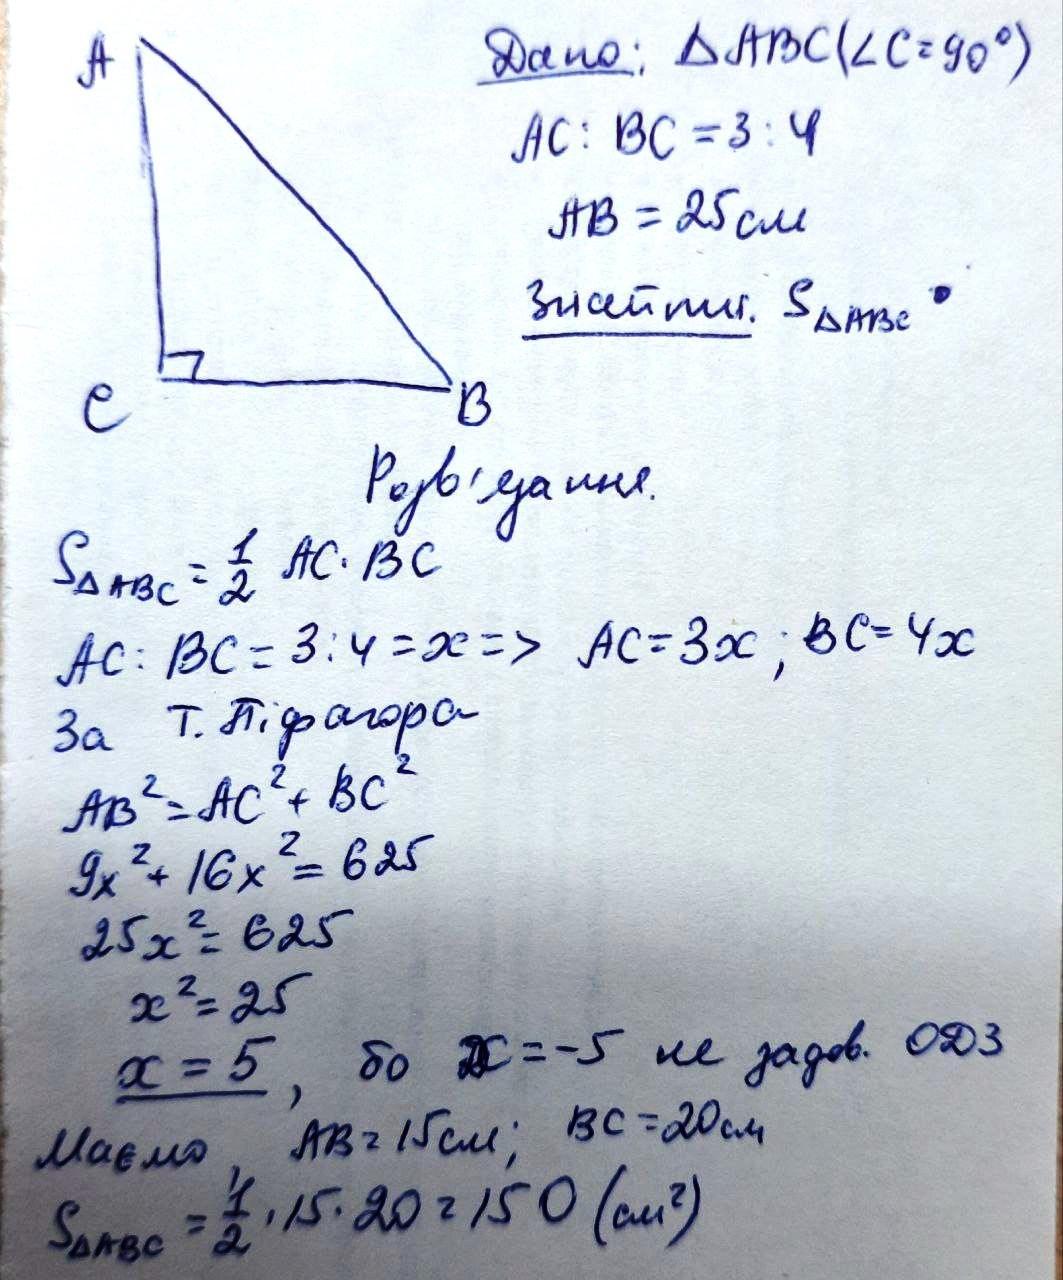 A
C
B
Дано: △ABC(∠C=90°)
AC : BC = 3 : 4
AB = 25см
Знайти: S△ABC.
Розв'язання.
S△ABC = 1/2 AC · BC
AC : BC = 3 : 4 = x => AC = 3x ; BC = 4x
За Т. Піфагора
AB² = AC² + BC²
9x² + 16x² = 625
25x² = 625
x² = 25
x = 5, бо x = -5 не задов. ОДЗ
Маємо, AB = 15см; BC = 20см
S△ABC = 1/2 · 15 · 20 = 150 (см²)